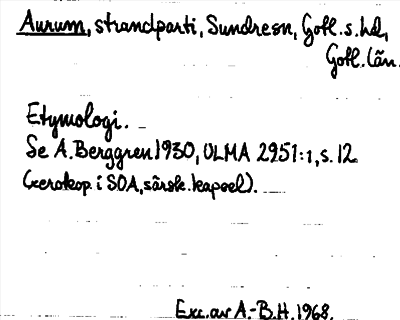 Aurum, strandparti, Sundre sn, Gotl. s. hd,
Gotl. län.
Etymologi.
Se A. Berggren 1930, ULMA 2951:1, s. 12
(xerokop. i SOA, särsk. kapsel).
Exc. av A.-B.H. 1968.